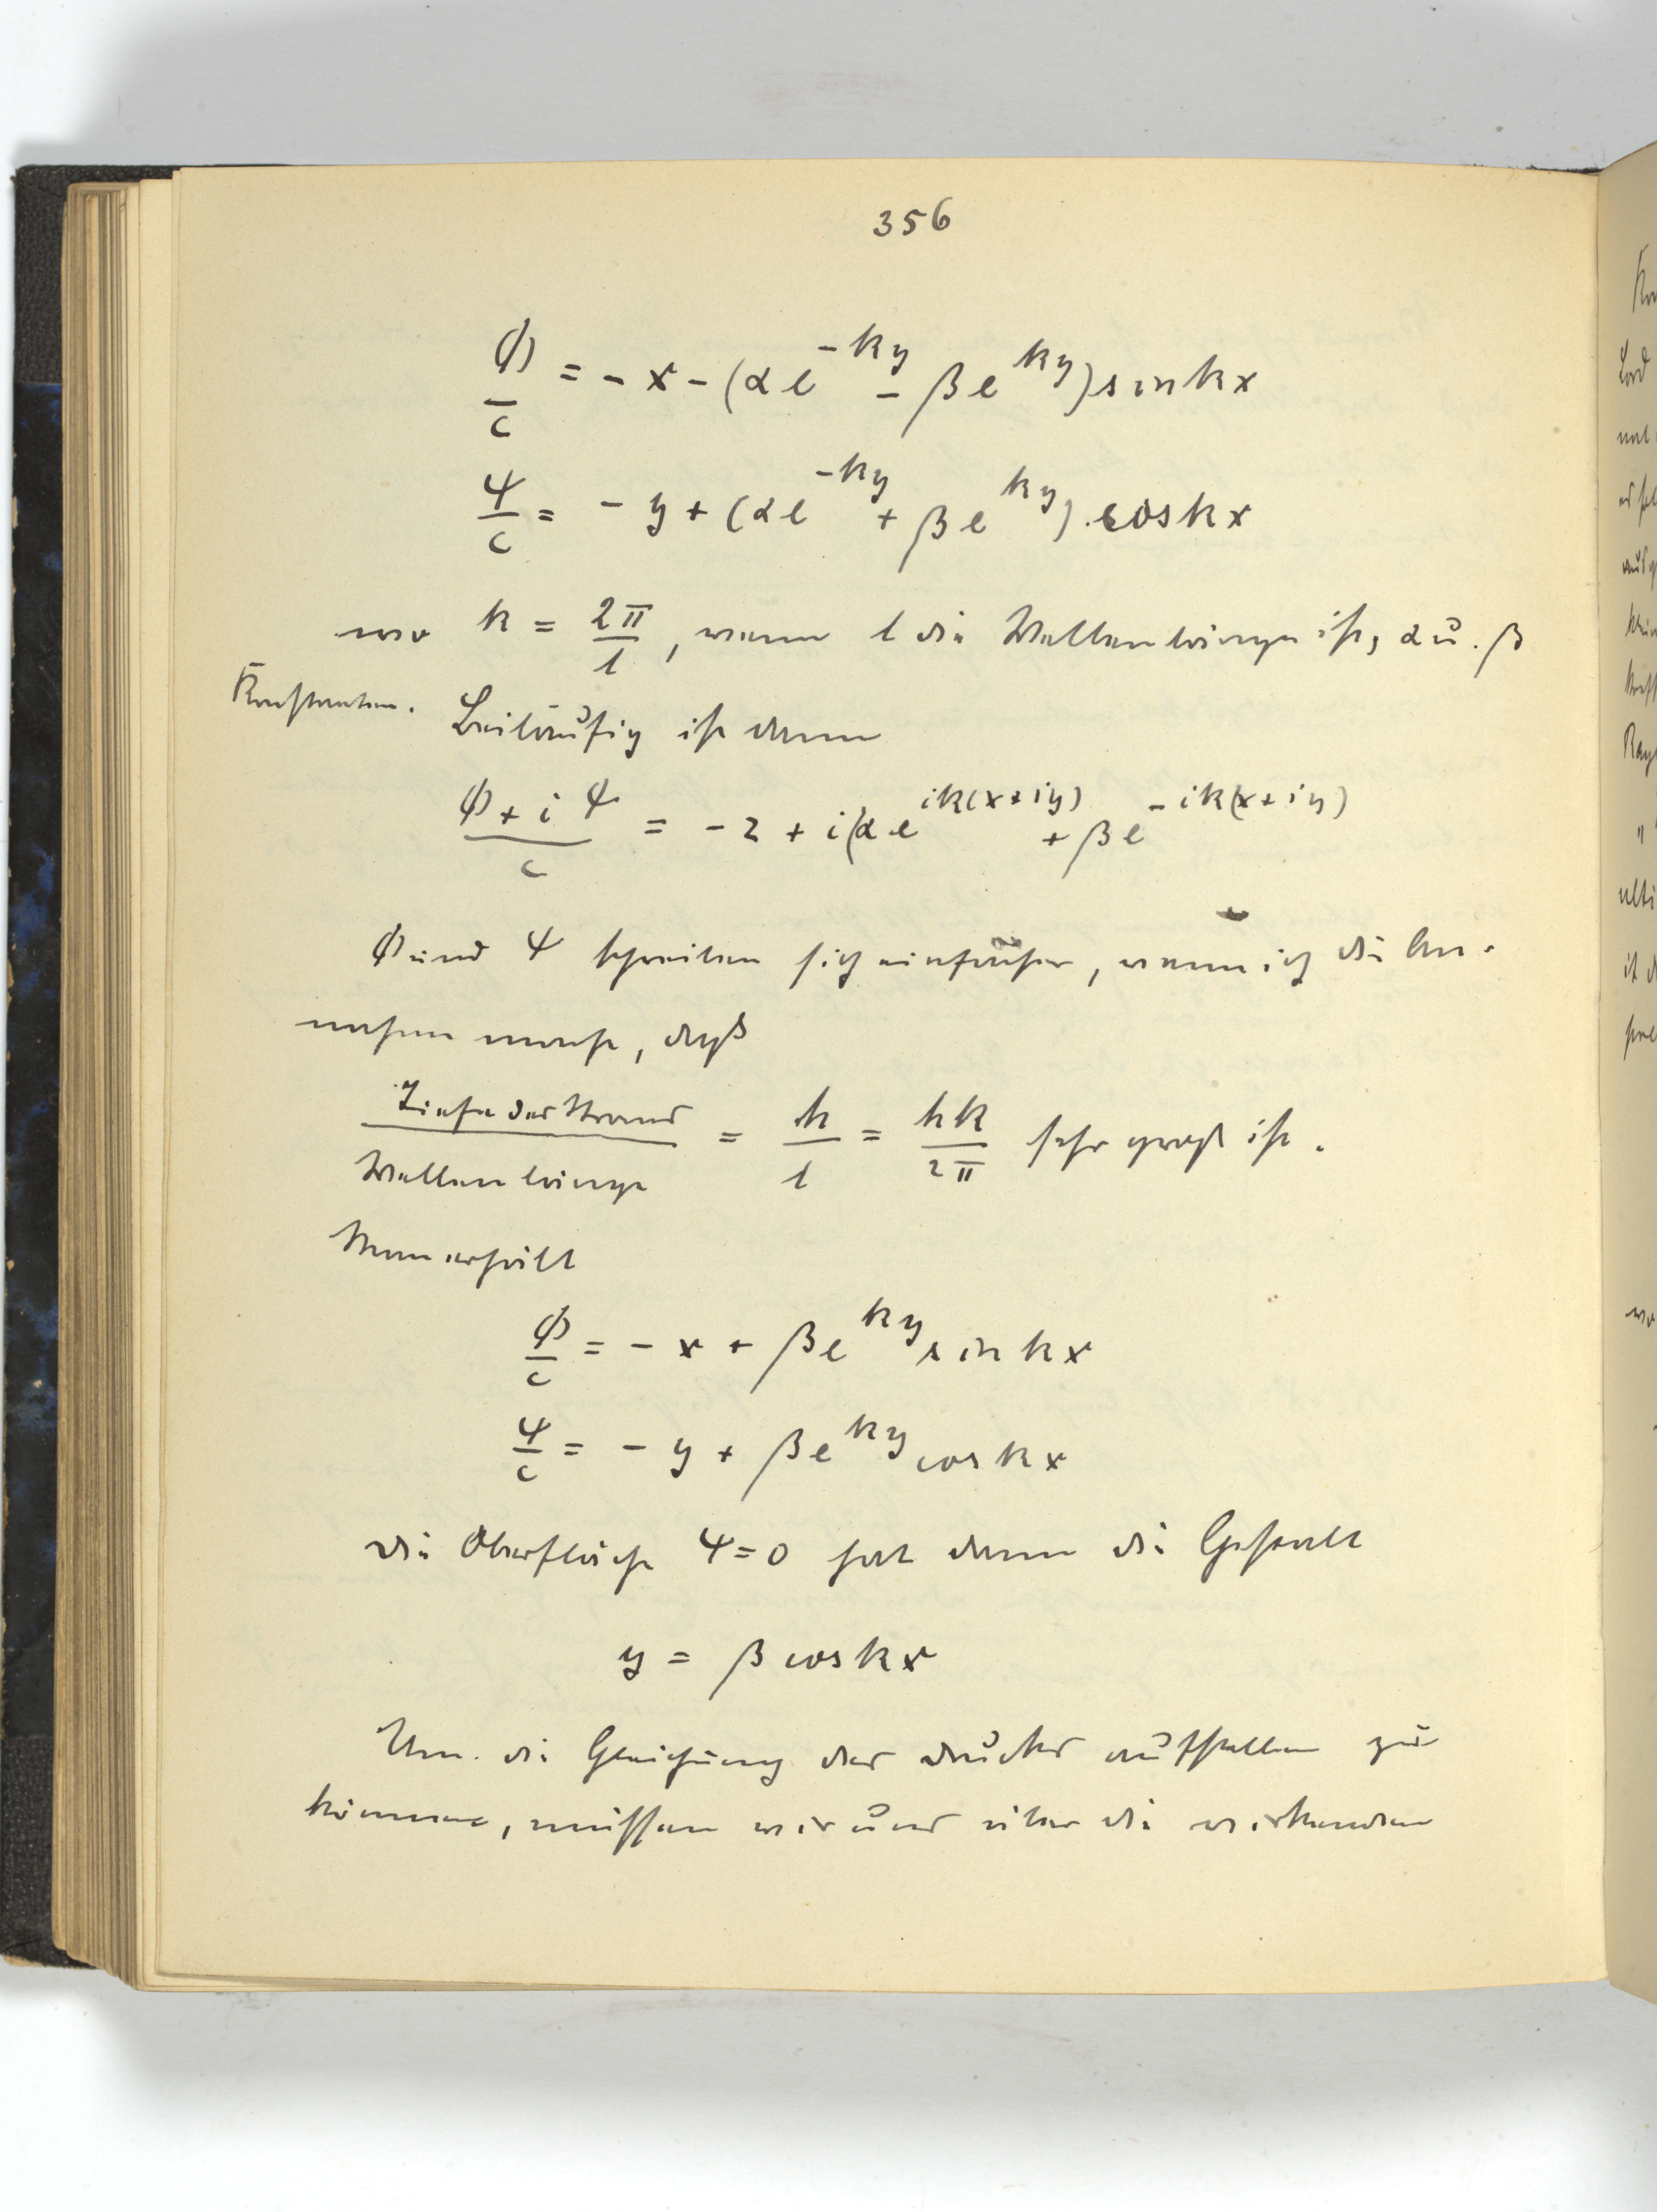 356
Φ/c = - x - (α e^{-ky} - β e^{ky}) sin kx
Ψ/c = - y + (α e^{-ky} + β e^{ky}) cos kx
wo k = 2π/l, wenn l die Wellenlänge ist, α u. β
Konstanten. Beiläufig ist dann
(Φ + i Ψ)/c = - z + i(α e^{ik(x+iy)} + β e^{-ik(x+iy)}
Φ und Ψ schreiben sich einfacher, wenn ich die An-
nahme mache, daß
Tiefe des Stroms / Wellenlänge = h/l = hk/2π sehr groß ist.
Man erhält
Φ/c = - x + β e^{ky} sin kx
Ψ/c = - y + β e^{ky} cos kx
Die Oberfläche Ψ = 0 hat dann die Gestalt
y = β cos kx
Um die Gleichung des Druckes aufstellen zu
können, müssen wir uns über die wirkenden